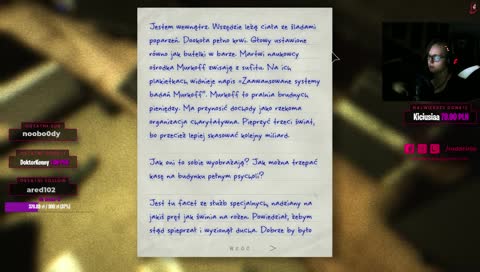 Jestem wewnątrz. Wszędzie leżą ciała ze śladami
poparzeń. Dookoła pełno krwi. Głowy ustawione
równo jak butelki w barze. Martwi naukowcy
ośrodka Murkoff zwisają z sufitu. Na ich
plakietkach widnieje napis „Zaawansowane systemy
badań Murkoff”. Murkoff to pralnia brudnych
pieniędzy. Ma przynosić dochody jako rzekoma
organizacja charytatywna. Pieprzyć trzeci świat,
bo przecież lepiej skasować kolejny miliard.
Jak oni to sobie wyobrażają? Jak można trzepać
kasę na budynku pełnym psycholi?
Jest tu facet ze służb specjalnych, nadziany na
jakiś pręt jak świnia na rożen. Powiedział, żebym
stąd spieprzał i wyzionął ducha. Dobrze by było
WRÓĆ >
noobo0dy
DoktorKenny
ared102
NAJWIĘKSZY DONEJT
Kiciusiaa 70.00 PLN